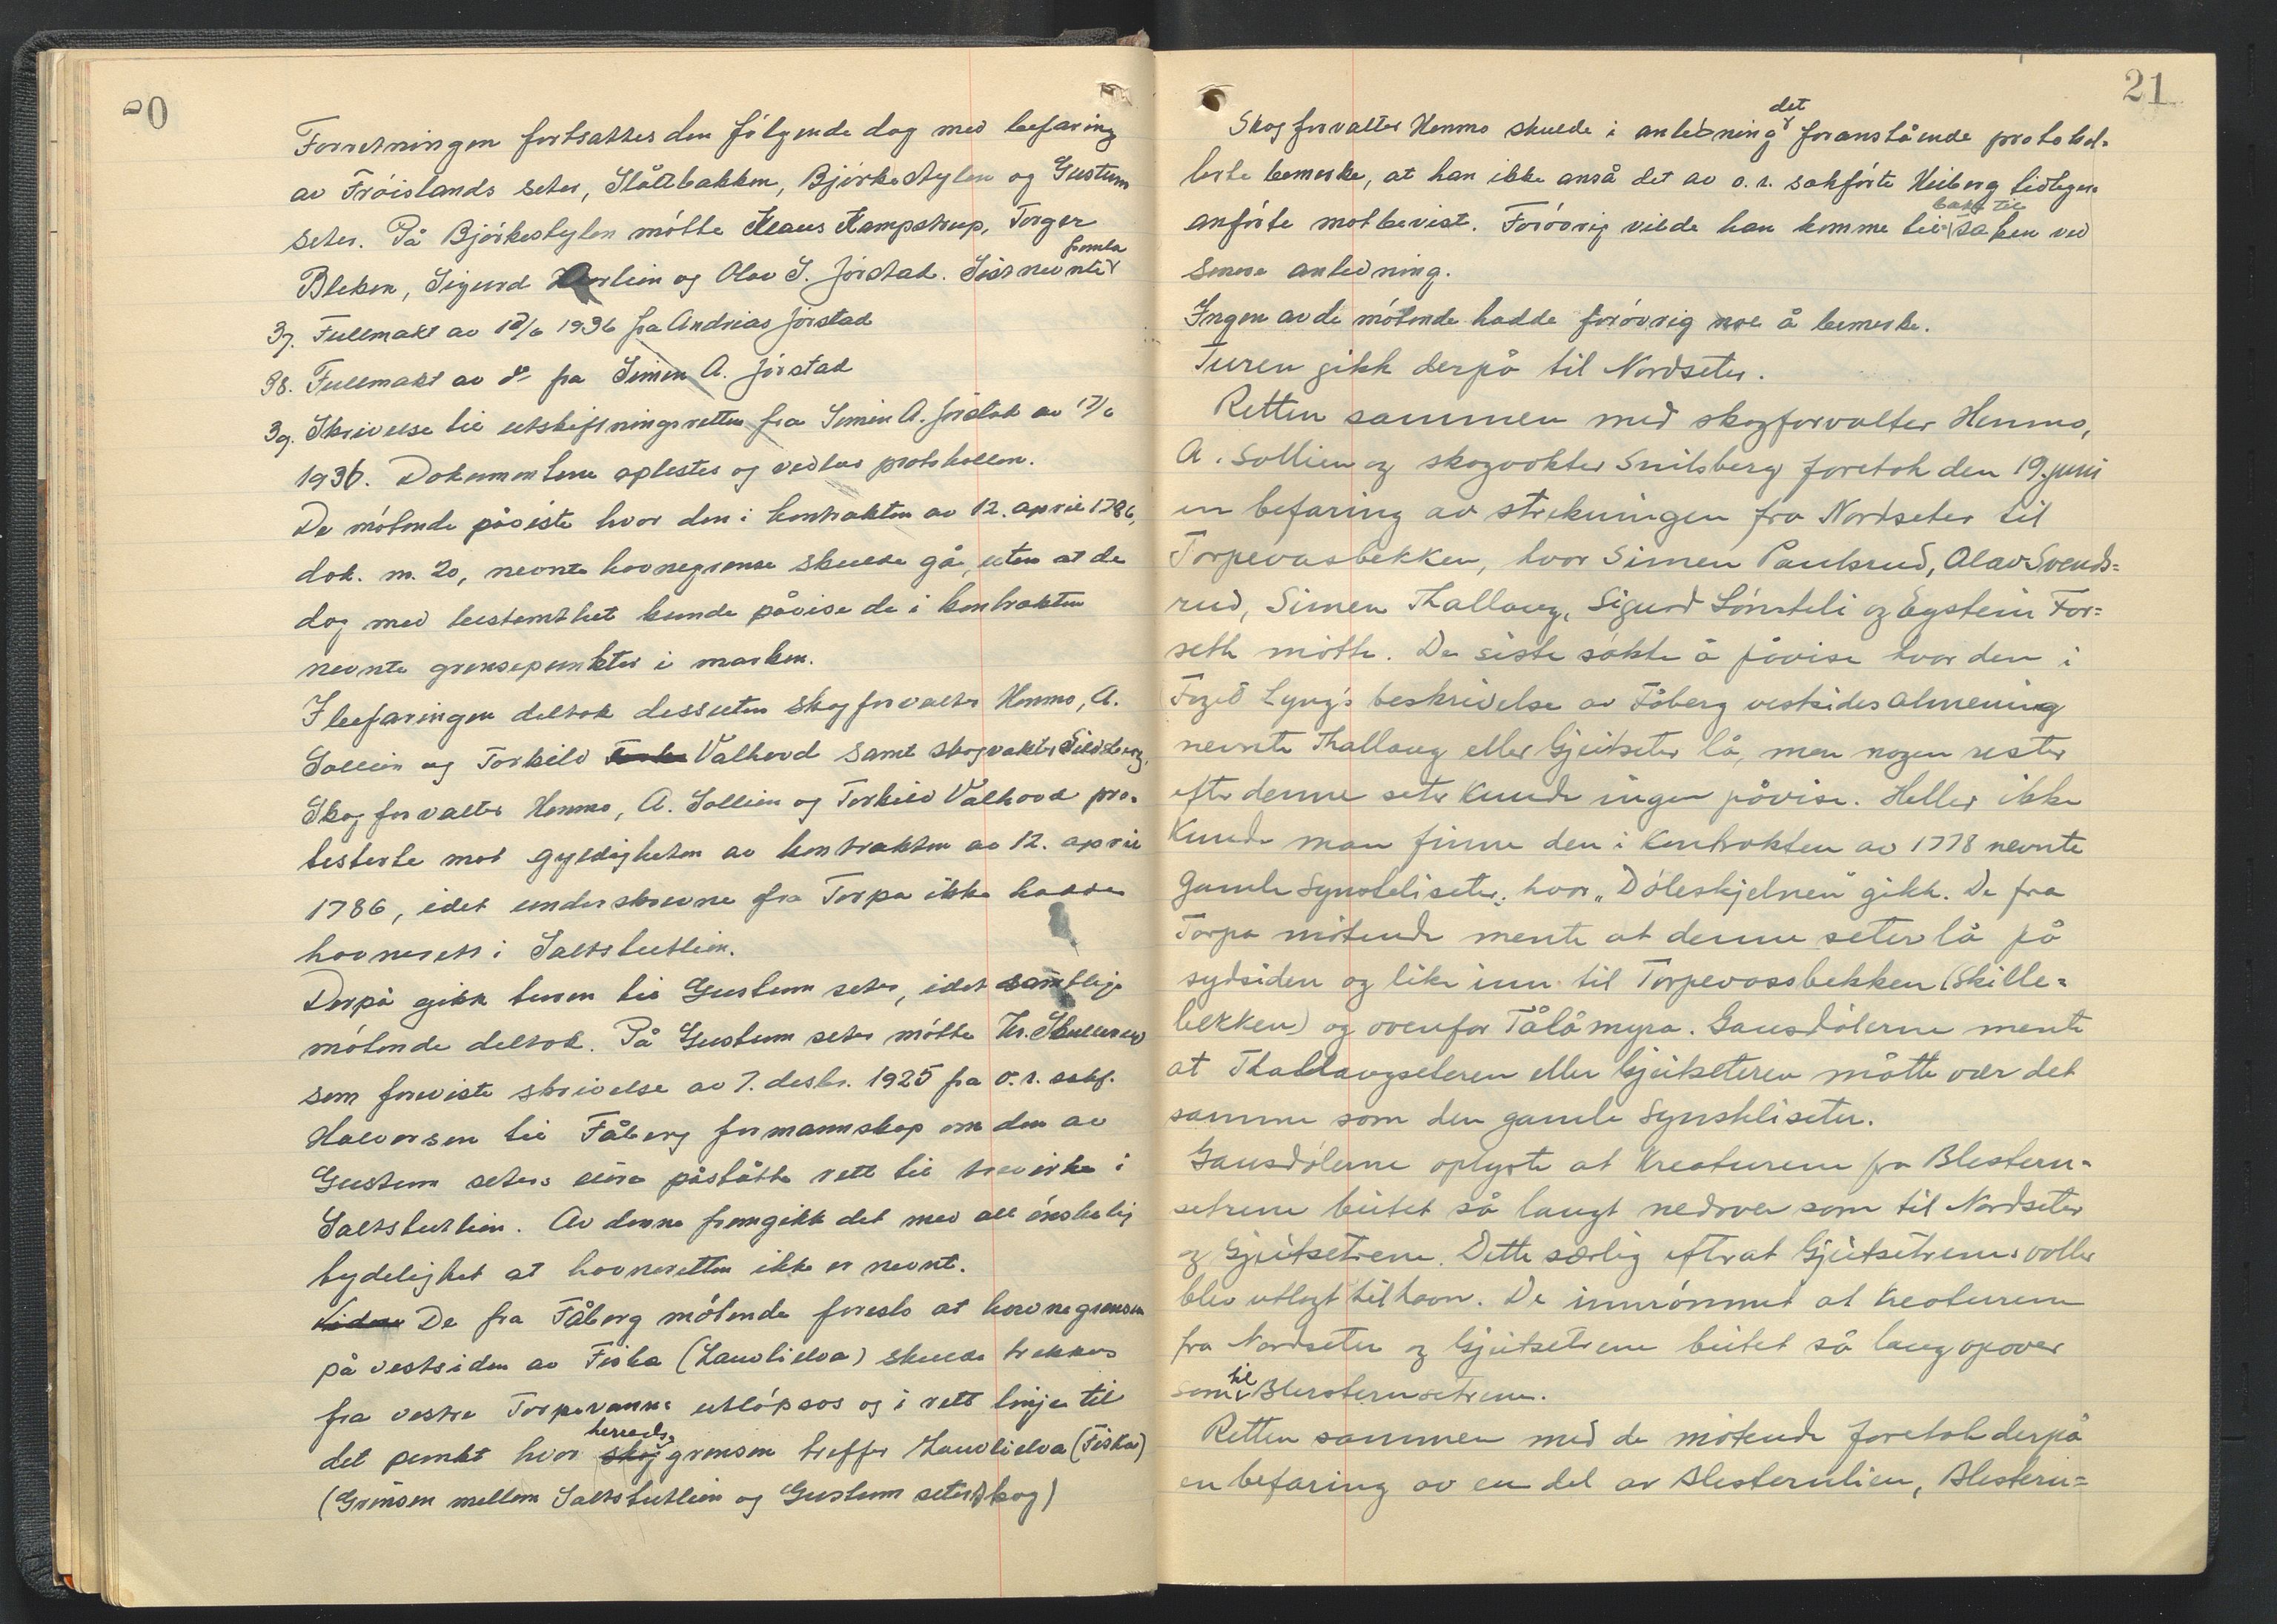 20
Forretningen fortsattes den følgende dag med befaring
av Frøislands seter, Slåttbakken, Bjørkestylen og Gustum
seter. På Bjørkestylen møtte Klaus Kampstrup, Torger
Bleken, Sigurd og Olav S. Jørstad. Sistnevnte fremla
37. Fullmakt av 18/6 1936 fra Andreas Jørstad
38. Fullmakt av do fra Simen A. Jørstad
39. Skrivelse til utskiftningsretten fra Simen A. Jørstad av 17/6
1936. Dokumentene oplestes og vedlas protokollen.
De møtende påviste hvor den i kontrakten av 12. april 1786,
dok. nr. 20, nevnte havnegrense skulde gå, uten at de
dog med bestemthet kunde påvise de i kontrakten
nevnte grensepunkter i marken.
I befaringen deltok dessuten skogforvalter Hemmo, A.
Sollien og Torkild Valhovd samt skogvokter
Skogforvalter Hemmo, A. Sollien og Torkild Valhovd pro-
testerte mot gyldigheten av kontrakten av 12. april
1786, idet underskrevne fra Torpa ikke hadde
havnerett i Saltstutlien.
Derpå gikk turen til Gustum seter, idet samtlige
møtende deltok. På Gustum seter møtte Kr. Skullerud
som foreviste skrivelse av 7. desbr. 1925 fra o.r. sakf.
Halvorsen til Fåberg formannskap om den av
Gustum seters eiere påståtte rett til trevirke i
Saltstutlien. Av denne fremgikk det med all ønskelig
tydelighet at havneretten ikke er nevnt.
De fra Fåberg møtende foreslo at havnegrensen
på vestsiden av Fiska (Lauvlielva) skulde trekkes
fra vestre Torpevanns utløpsos og i rett linje til
det punkt hvor herreds-grensen treffer Lauvlielva (Fiska)
(Grensen mellem Saltstutlien og Gustum seterskog)
21
Skogforvalter Hemmo skulde i anledning det foranstående protokol-
lerte bemerke, at han ikke anså det av o.r. sakførte Heiberg tidligere
anførte motbevist. Forøvrig vilde han komme tilbake til saken ved
senere anledning.
Ingen av de møtende hadde forøvrig noe å bemerke.
Turen gikk derpå til Nordseter.
Retten sammen med skogforvalter Hemmo,
A. Sollien og skogvokter Snilsberg foretok den 19. juni
en befaring av strekningen fra Nordseter til
Torpevasbekken, hvor Simen Paulsrud, Olav Svends=
rud, Simen Thallaug, Sigurd Lønsteli og Eystein For=
seth møtte. De siste søkte å påvise hvor den i
Foged Lyng's beskrivelse av Fåberg vestsides almening
nevnte Thallaug eller Gjeitseter lå, men nogen rester
efter denne seter kunde ingen påvise. Heller ikke
kunde man finne den i kontrakten av 1778 nevnte
gamle Synsteliseter, hvor „Døleskjelnen" gikk. De fra
Torpa møtende mente at denne seter lå på
sydsiden og like inn til Torpevassbekken (Skille=
bekken) og ovenfor Tålåmyra. Gausdølerne mente
at Thallaugseteren eller Gjeitseteren måtte vær det
samme som den gamle Synsteliseter.
Gausdølerne oplyste at kreaturene fra Blestern-
setrene beitet så langt nedover som til Nordseter
og Gjeitsetrene. Dette særlig efterat Gjeitsetrenes voller
blev utlagt til havn. De innrømmet at kreaturene
fra Nordseter og Gjeitsetrene beitet så langt opover
som til Blesternsetrene.
Retten sammen med de møtende foretok derpå
en befaring av en del av Blesternlien, Blestern=